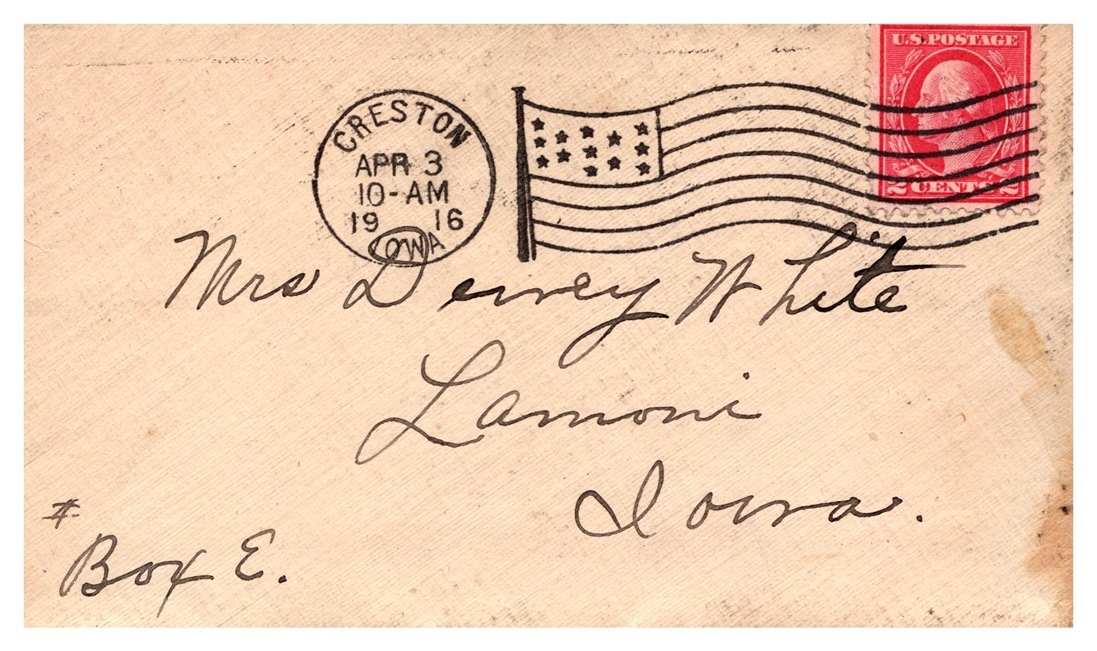 U.S. POSTAGE
2 CENTS 2
CRESTON
APR 3
10-AM
19 16
IOWA
Mrs Dewey White
Lamoni
Iowa.
#
Box E.